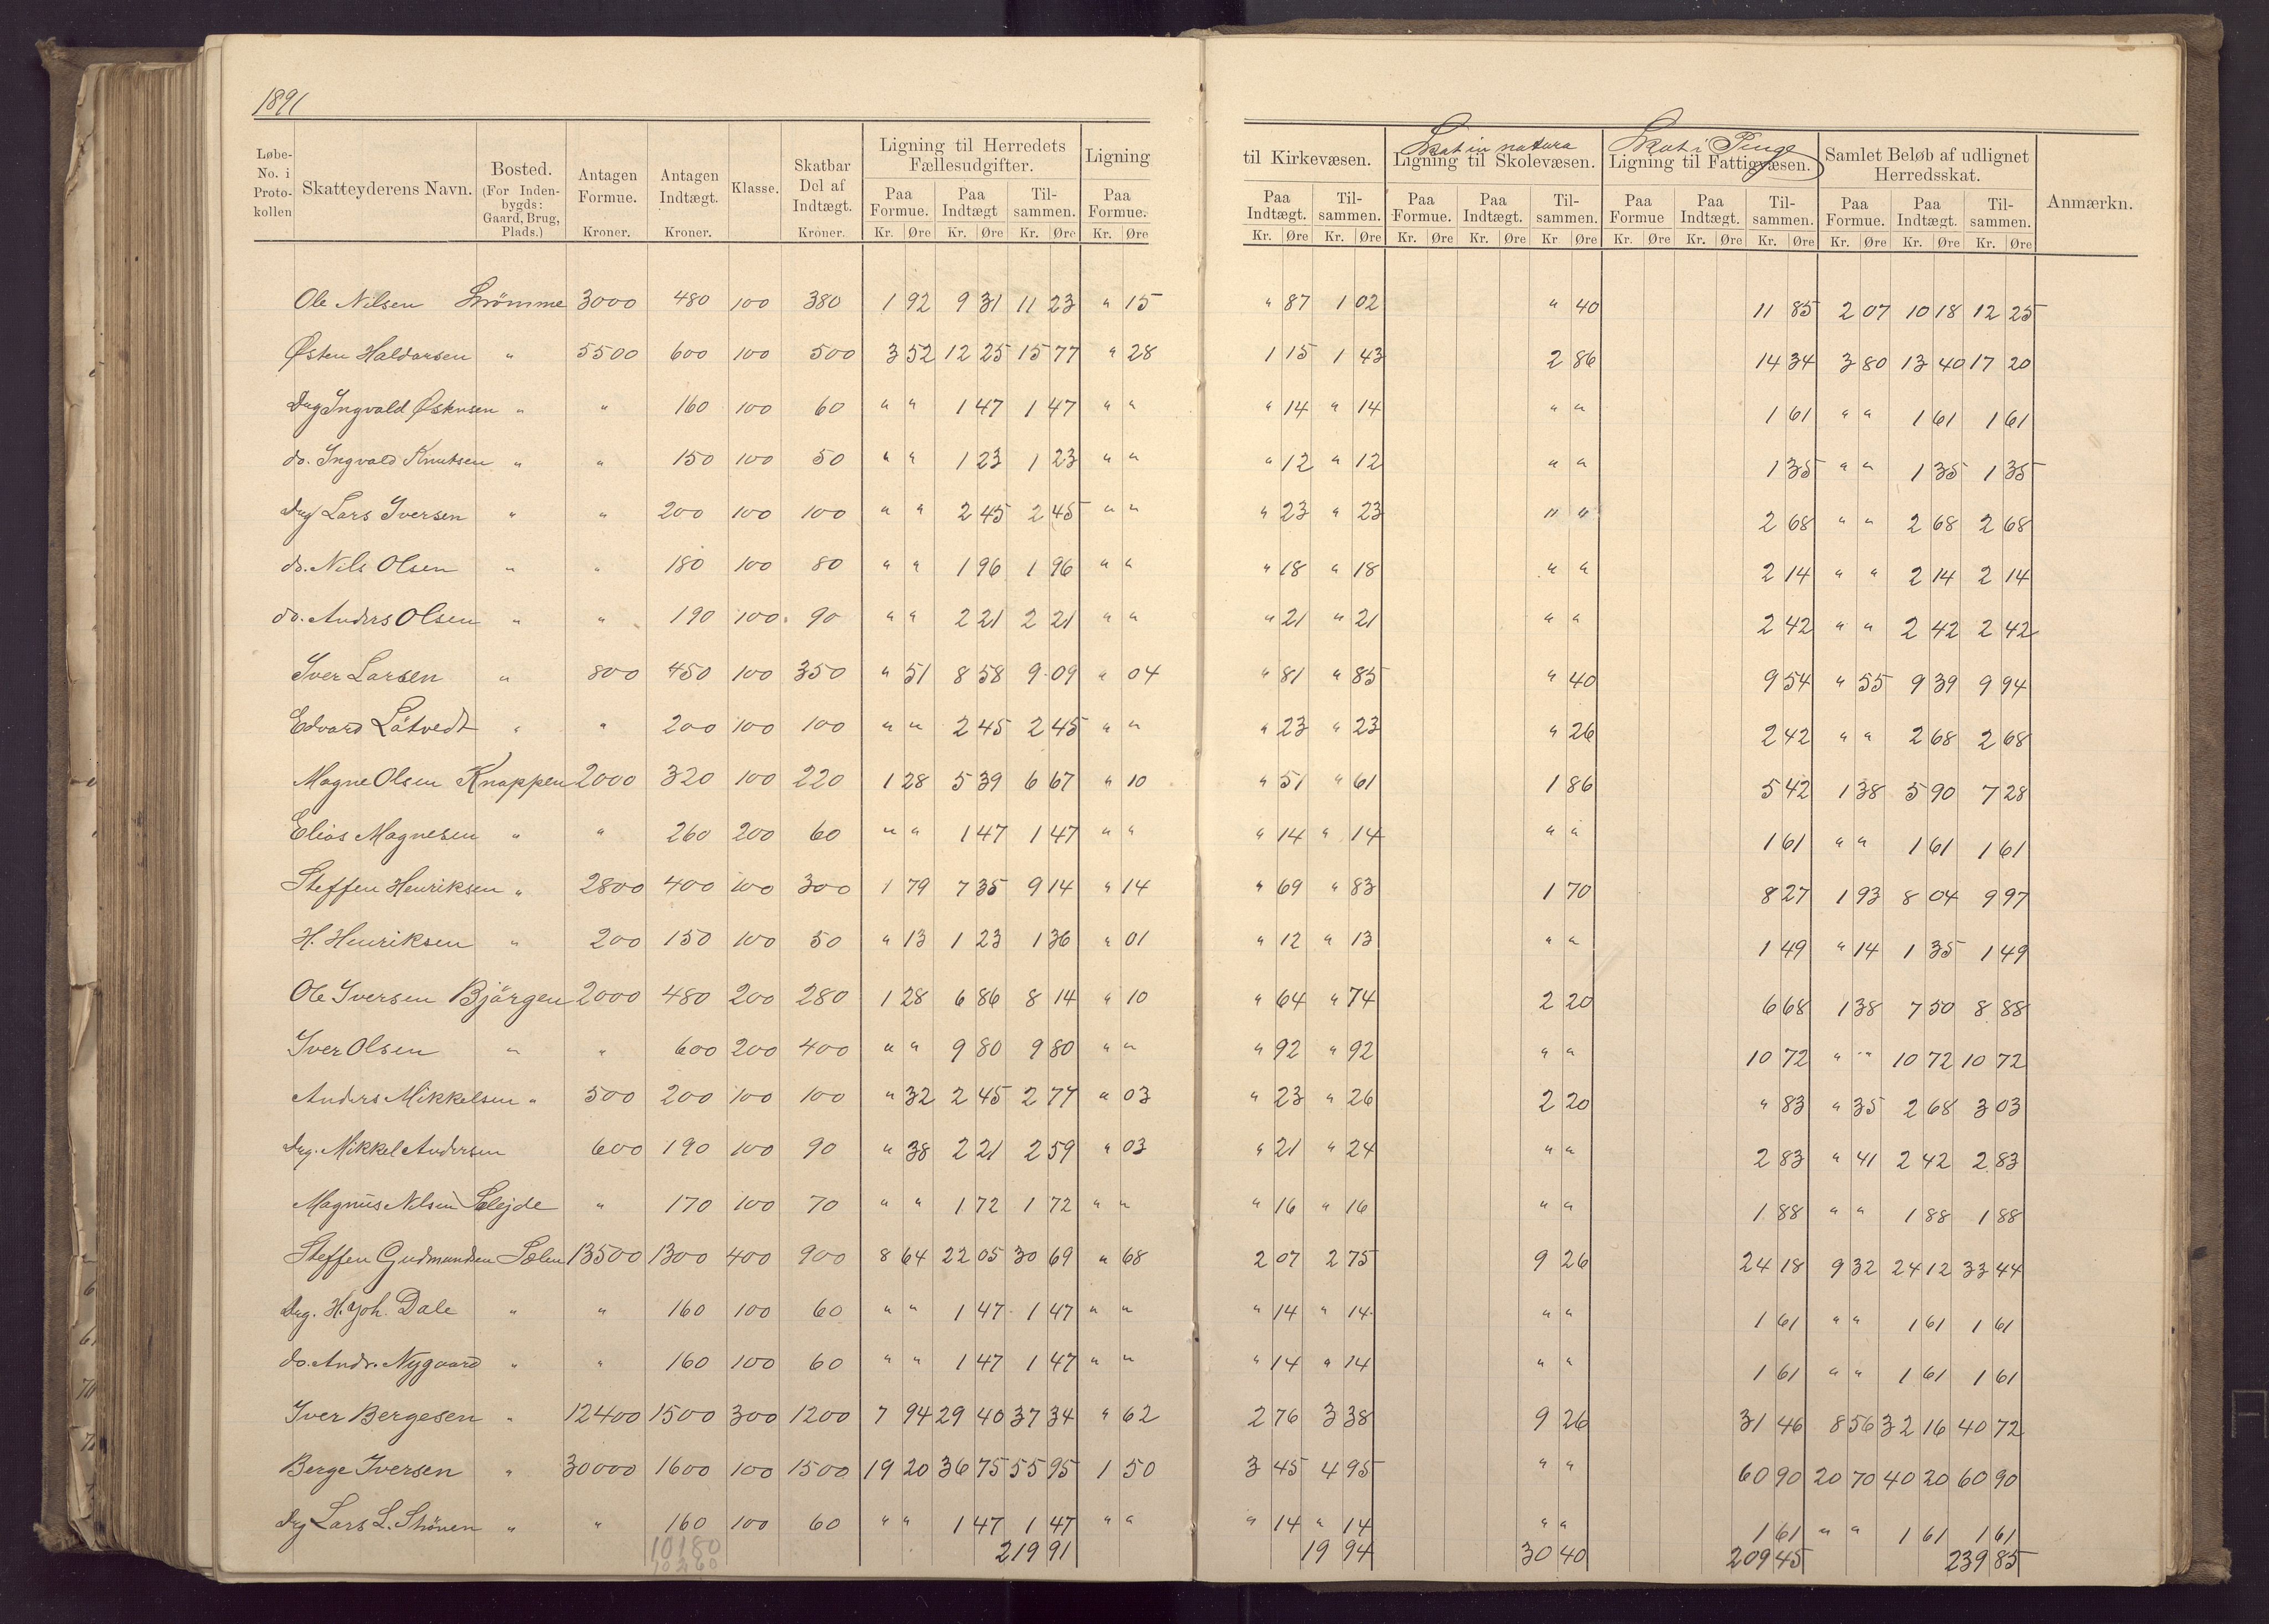 1891
Løbe-No. i Protokollen | Skatteyderens Navn. | Bosted. (For Indenbygds: Gaard, Brug, Plads.) | Antagen Formue. Kroner. | Antagen Indtægt. Kroner. | Klasse. | Skatbar Del af Indtægt. Kroner. | Ligning til Herredets Fællesudgifter. Paa Formue. Kr. Øre | Paa Indtægt Kr. Øre | Tilsammen. Kr. Øre | Ligning Paa Formue. Kr. Øre | til Kirkevæsen. Paa Indtægt. Kr. Øre | Tilsammen. Kr. Øre | Skat in natura Ligning til Skolevæsen. Paa Formue. Kr. Øre | Paa Indtægt. Kr. Øre | Tilsammen. Kr Øre | Skat i Penge Ligning til Fattigvæsen. Paa Formue Kr. Øre | Paa Indtægt. Kr. Øre | Tilsammen. Kr. Øre | Samlet Beløb af udlignet Herredsskat. Paa Formue. Kr. Øre | Paa Indtægt. Kr. Øre | Tilsammen. Kr. Øre | Anmærkn.
Ole Nilsen Strömme 3000 480 100 380 1 92 9 31 11 23 " 15 " 87 1 02 " 40 11 85 2 07 10 18 12 25
Østen Haldorsen " 5500 600 100 500 3 52 12 25 15 77 " 28 1 15 1 43 2 86 14 34 3 80 13 40 17 20
Dug Ingvald Østensen " " 160 100 60 " " 1 47 1 47 " " " 14 " 14 " " 1 61 " " 1 61 1 61
do. Ingvald Knutsen " " 150 100 50 " " 1 23 1 23 " " " 12 " 12 " " 1 35 " " 1 35 1 35
Dug Lars Iversen " " 200 100 100 " " 2 45 2 45 " " " 23 " 23 " " 2 68 " " 2 68 2 68
do. Nils Olsen " " 180 100 80 " " 1 96 1 96 " " " 18 " 18 " " 2 14 " " 2 14 2 14
do. Anders Olsen " " 190 100. 90 " " 2 21 2 21 " " " 21 " 21 " " 2 42 " " 2 42 2 42
Iver Larsen " 800 450 100 350 " 51 8 58 9 09 " 04 " 81 " 85 " 40 9 54 " 55 9 39 9 94
Edvard Låtvedt " " 200 100 100 " " 2 45 2 45 " " " 23 " 23 " 26 2 42 " " 2 68 2 68
Magne Olsen Knappen 2000 320 100 220 1 28 5 39 6 67 " 10 " 51 " 61 1 86 5 42 1 38 5 90 7 28
Elias Magnesen " " 260 200 60 " " 1 47 1 47 " " " 14 " 14 " " 1 61 " " 1 61 1 61
Steffen Henriksen " 2800 400 100 300 1 79 7 35 9 14 " 14 " 69 " 83 1 70 8 27 1 93 8 04 9 97
H. Henriksen " 200 150 100 50 " 13 1 23 1 36 " 01 " 12 " 13 " " 1 49 " 14 1 35 1 49
Ole Iversen Björgen 2000 480 200 280 1 28 6 86 8 14 " 10 " 64 " 74 2 20 6 68 1 38 7 50 8 88
Iver Olsen " " 600 200 400 " " 9 80 9 80 " " " 92 " 92 " " 10 72 " " 10 72 10 72
Anders Mikkelsen " 500 200 100 100 " 32 2 45 2 77 " 03 " 23 " 26 2 20 " 83 " 35 2 68 3 03
Dug. Mikkel Andersen 600 190 100 90 " 38 2 21 2 59 " 03 " 21 " 24 " " 2 83 " 41 2 42 2 83
Magnus Nilsen " 170 100 70 " " 1 72 1 72 " " " 16 " 16 " " 1 88 " " 1 88 1 88
Steffen Gudmundsen Sælen 13500 1300 400 900 8 64 22 05 30 69 " 68 2 07 2 75 9 26 24 18 9 32 24 12 33 44
Dug. H. Joh. Dale " " 160 100 60 " " 1 47 1 47 " " " 14 " 14 " " 1 61 " " 1 61 1 61
do. Andr. Nygaard " " 160 100 60 " " 1 47 1 47 " " " 14 " 14 " " 1 61 " " 1 61 1 61
Iver Bergesen " 12400 1500 300 1200 7 94 29 40 37 34 " 62 2 76 3 38 9 26 31 46 8 56 32 16 40 72
Berge Iversen " 30000 1600 100 1500 19 20 36 75 55 95 1 50 3 45 4 95 " " 60 90 20 70 40 20 60 90
Dug Lars L. " " 160 100 60 " " 1 47 1 47 " " " 14 " 14 " " 1 61 " " 1 61 1 61
10180 219 91 19 94 30 40 209 45 239 85
10260